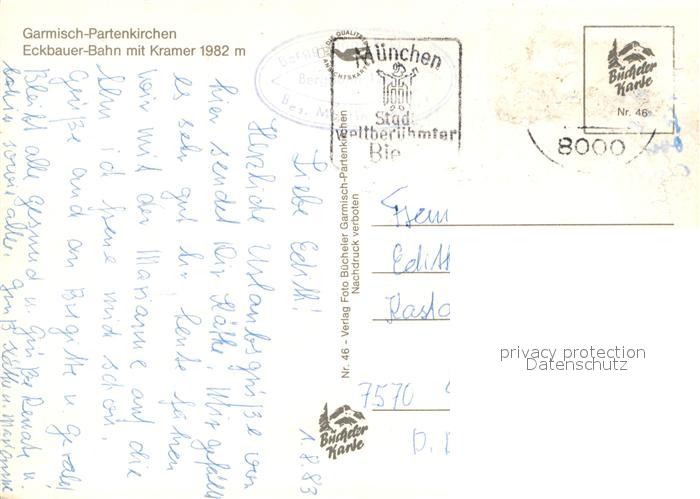 Garmisch-Partenkirchen
Eckbauer-Bahn mit Kramer 1982 m
DIE QUALITÄTS
ANSICHTSKARTE
München
Stadt
weltberühmter
Bie
8000
Bücheler
Karte
Nr. 46
Nr. 46 – Verlag Foto Bücheler Garmisch-Partenkirchen
Nachdruck verboten
Bücheler
Karte
1.8.83
Liebe Edith!
Herzliche Urlaubsgrüße von
hier sendet Dir Käthe. Mir gefällt
es sehr gut hier, heute fahren
wir mit der Marianne auf die
Alm ich freue mich schon.
Grüße and an Birgitte u. Gerald
Bleibt alle gesund u. Grüße Renate u.
sowie alle. Gruß Käthe u. Marianne
Edith
7570
privacy protection
Datenschutz